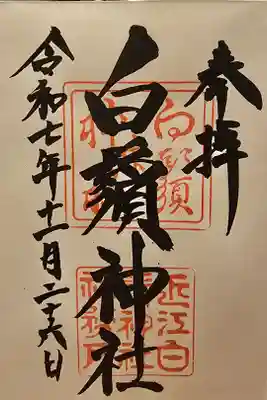 奉拝
白鬚神社
令和七年十一月二十六日
白鬚
近江白
鬚神社
社務所